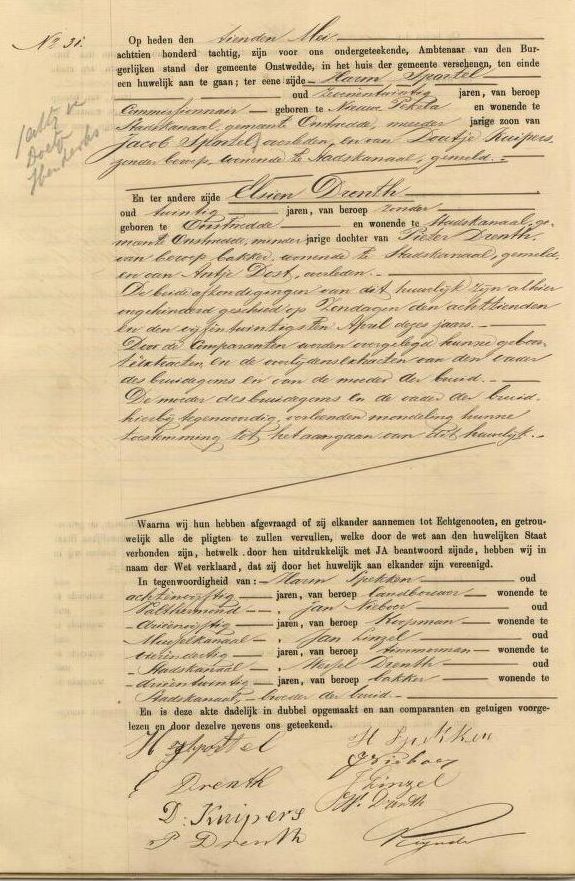 No 31.
Op heden den tienden Mei
achttien honderd tachtig, zijn voor ons ondergeteekende, Ambtenaar van den Bur-
gerlijken stand der gemeente Onstwedde, in het huis der gemeente verschenen, ten einde
een huwelijk aan te gaan; ter eene zijde Harm Spastel
oud zevenentwintig jaren, van beroep
Commissionnair geboren te Nieuwe Pekela en wonende te
Stadskanaal, gemeente Onstwedde, meerder jarige zoon van
Jacob Spastel, overleden, en van Doetje Kuipers,
zonder beroep, wonende te Stadskanaal, gemeld.
En ter andere zijde Elsien Drenth
oud twintig jaren, van beroep zonder
geboren te Onstwedde en wonende te Stadskanaal, ge-
meente Onstwedde, minder jarige dochter van Pieter Drenth,
van beroep bakker, wonende te Stadskanaal, gemeld,
en van Antje Dost, overleden.
De beide afkondigingen van dit huwelijk zijn alhier
ongehinderd geschied op Zondagen den achttienden
en den vijfentwintigsten April dezes jaars.
Door de Comparanten werden overgelegd hunne geboor-
teextracten, en de overlijdensextracten van den vader
des bruidegoms en van de moeder der bruid.
De moeder des bruidegoms en de vader der bruid
hierbij tegenwoordig, verleenden mondeling hunne
toestemming tot het aangaan van dit huwelijk.
Waarna wij hun hebben afgevraagd of zij elkander aannemen tot Echtgenooten, en getrou-
welijk alle de pligten te zullen vervullen, welke door de wet aan den huwelijken Staat
verbonden zijn, hetwelk door hen uitdrukkelijk met JA beantwoord zijnde, hebben wij in
naam der Wet verklaard, dat zij door het huwelijk aan elkander zijn vereenigd.
In tegenwoordigheid van: Harm Spekken oud
achtenvijftig jaren, van beroep landbouwer wonende te
Valthermond, Jan Nieboer oud
drieenvijftig jaren, van beroep Koopman wonende te
Musselkanaal, Jan Linzel oud
vierendertig jaren, van beroep timmerman wonende te
Stadskanaal, Wessel Drenth oud
drieentwintig jaren, van beroep bakker wonende te
Stadskanaal, broeder der bruid
En is deze akte dadelijk in dubbel opgemaakt en aan comparanten en getuigen voorge-
lezen en door dezelve nevens ons geteekend.
H Spastel
H Spekken
J Nieboer
E Drenth
J Linzel
W. Drenth
D: Kuipers
P Drenth